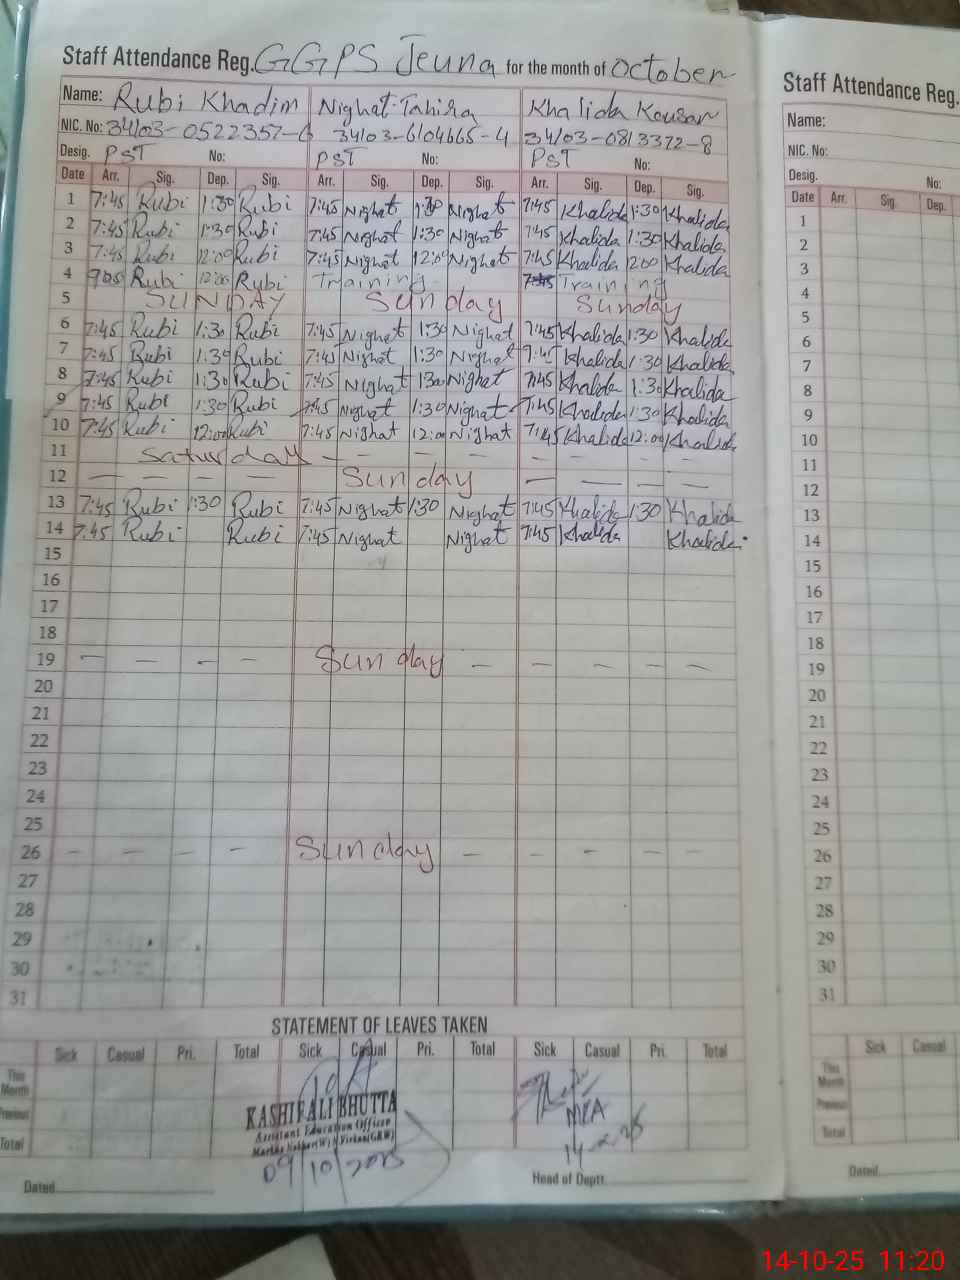 Staff Attendance Reg. GGPS Jeuna for the month of October
Name: Rubi Khadim Nighat Tahira Khalida Kousar
NIC. No: 34103-0522357-6 34103-6104665-4 34103-0813372-8
Desig. PST No: PST No: PST No:
Date Arr. Sig. Dep. Sig. Arr. Sig. Dep. Sig. Arr. Sig. Dep. Sig.
1 7:45 Rubi 1:30 Rubi 7:45 Nighat 1:30 Nighat 7:45 Khalida 1:30 Khalida
2 7:45 Rubi 1:30 Rubi 7:45 Nighat 1:30 Nighat 7:45 Khalida 1:30 Khalida
3 7:45 Rubi 12:00 Rubi 7:45 Nighat 12:00 Nighat 7:45 Khalida 1200 Khalida
4 900 Rubi 12:00 Rubi Training 7:45 Training
5 SUNDAY Sunday Sunday
6 7:45 Rubi 1:30 Rubi 7:45 Nighat 1:30 Nighat 7:45 Khalida 1:30 Khalida
7 7:45 Rubi 1:30 Rubi 7:45 Nighat 1:30 Nighat 7:45 Khalida 1:30 Khalida
8 7:45 Rubi 1:30 Rubi 7:45 Nighat 130 Nighat 7:45 Khalida 1:30 Khalida
9 7:45 Rubi 1:30 Rubi 7:45 Nighat 1:30 Nighat 7:45 Khalida 1:30 Khalida
10 7:45 Rubi 12:00 Rubi 7:45 Nighat 12:00 Nighat 7:45 Khalida 12:00 Khalida
11 Saturday — — — — — — — —
12 — — — — Sunday — — — —
13 7:45 Rubi 1:30 Rubi 7:45 Nighat 1:30 Nighat 7:45 Khalida 1:30 Khalida
14 7:45 Rubi Rubi 7:45 Nighat Nighat 7:45 Khalida Khalida
15
16
17
18
19 — — — — Sunday — — — — —
20
21
22
23
24
25
26 — — — — Sunday — — — — —
27
28
29
30
31
STATEMENT OF LEAVES TAKEN
Sick Casual Pri. Total Sick Casual Pri. Total Sick Casual Pri. Total
This Month
Previous
Total
KASHIF ALI BHUTTA
Assistant Education Officer
09/10/2025
MEA
14
Dated
Head of Deptt.
Staff Attendance Reg.
Name:
NIC. No:
Desig. No:
Date Arr. Sig. Dep.
1
2
3
4
5
6
7
8
9
10
11
12
13
14
15
16
17
18
19
20
21
22
23
24
25
26
27
28
29
30
31
Sick Casual
This Month
Previous
Total
Dated
14-10-25 11:20